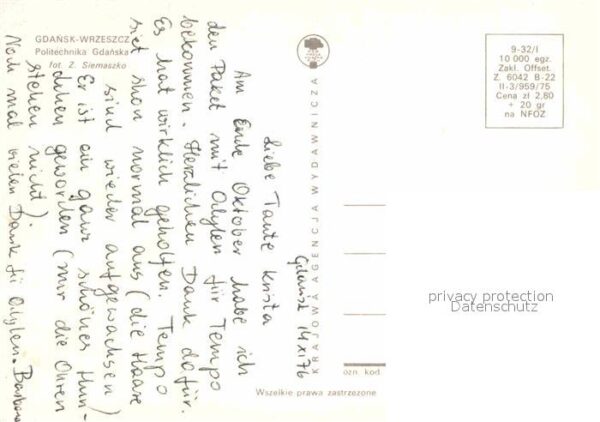 GDAŃSK-WRZESZCZ
Politechnika Gdańska
fot. Z. Siemaszko
KRAJOWA AGENCJA WYDAWNICZA
9-32/I
10 000 egz.
Zakl. Offset.
Z. 6042 B-22
II-3/959/75
Cena zł 2,80
+ 20 gr
na NFOZ
Gdańsk 14 XI 76
Liebe Tante Krista
Am Ende Oktober habe ich
den Paket mit Alylen für Tempo
bekommen. Herzlichen Dank dafür.
Es hat wirklich geholfen. Tempo
siet shon normal aus (die Haare
sind wieder aufgewachsen)
Er ist ein ganz schönes Hun-
dchen geworden (nur die Ohren
stehen nicht).
Noch mal vielen Dank für Alylen. Barbara
ozn. kod
Wszelkie prawa zastrzeżone
privacy protection
Datenschutz